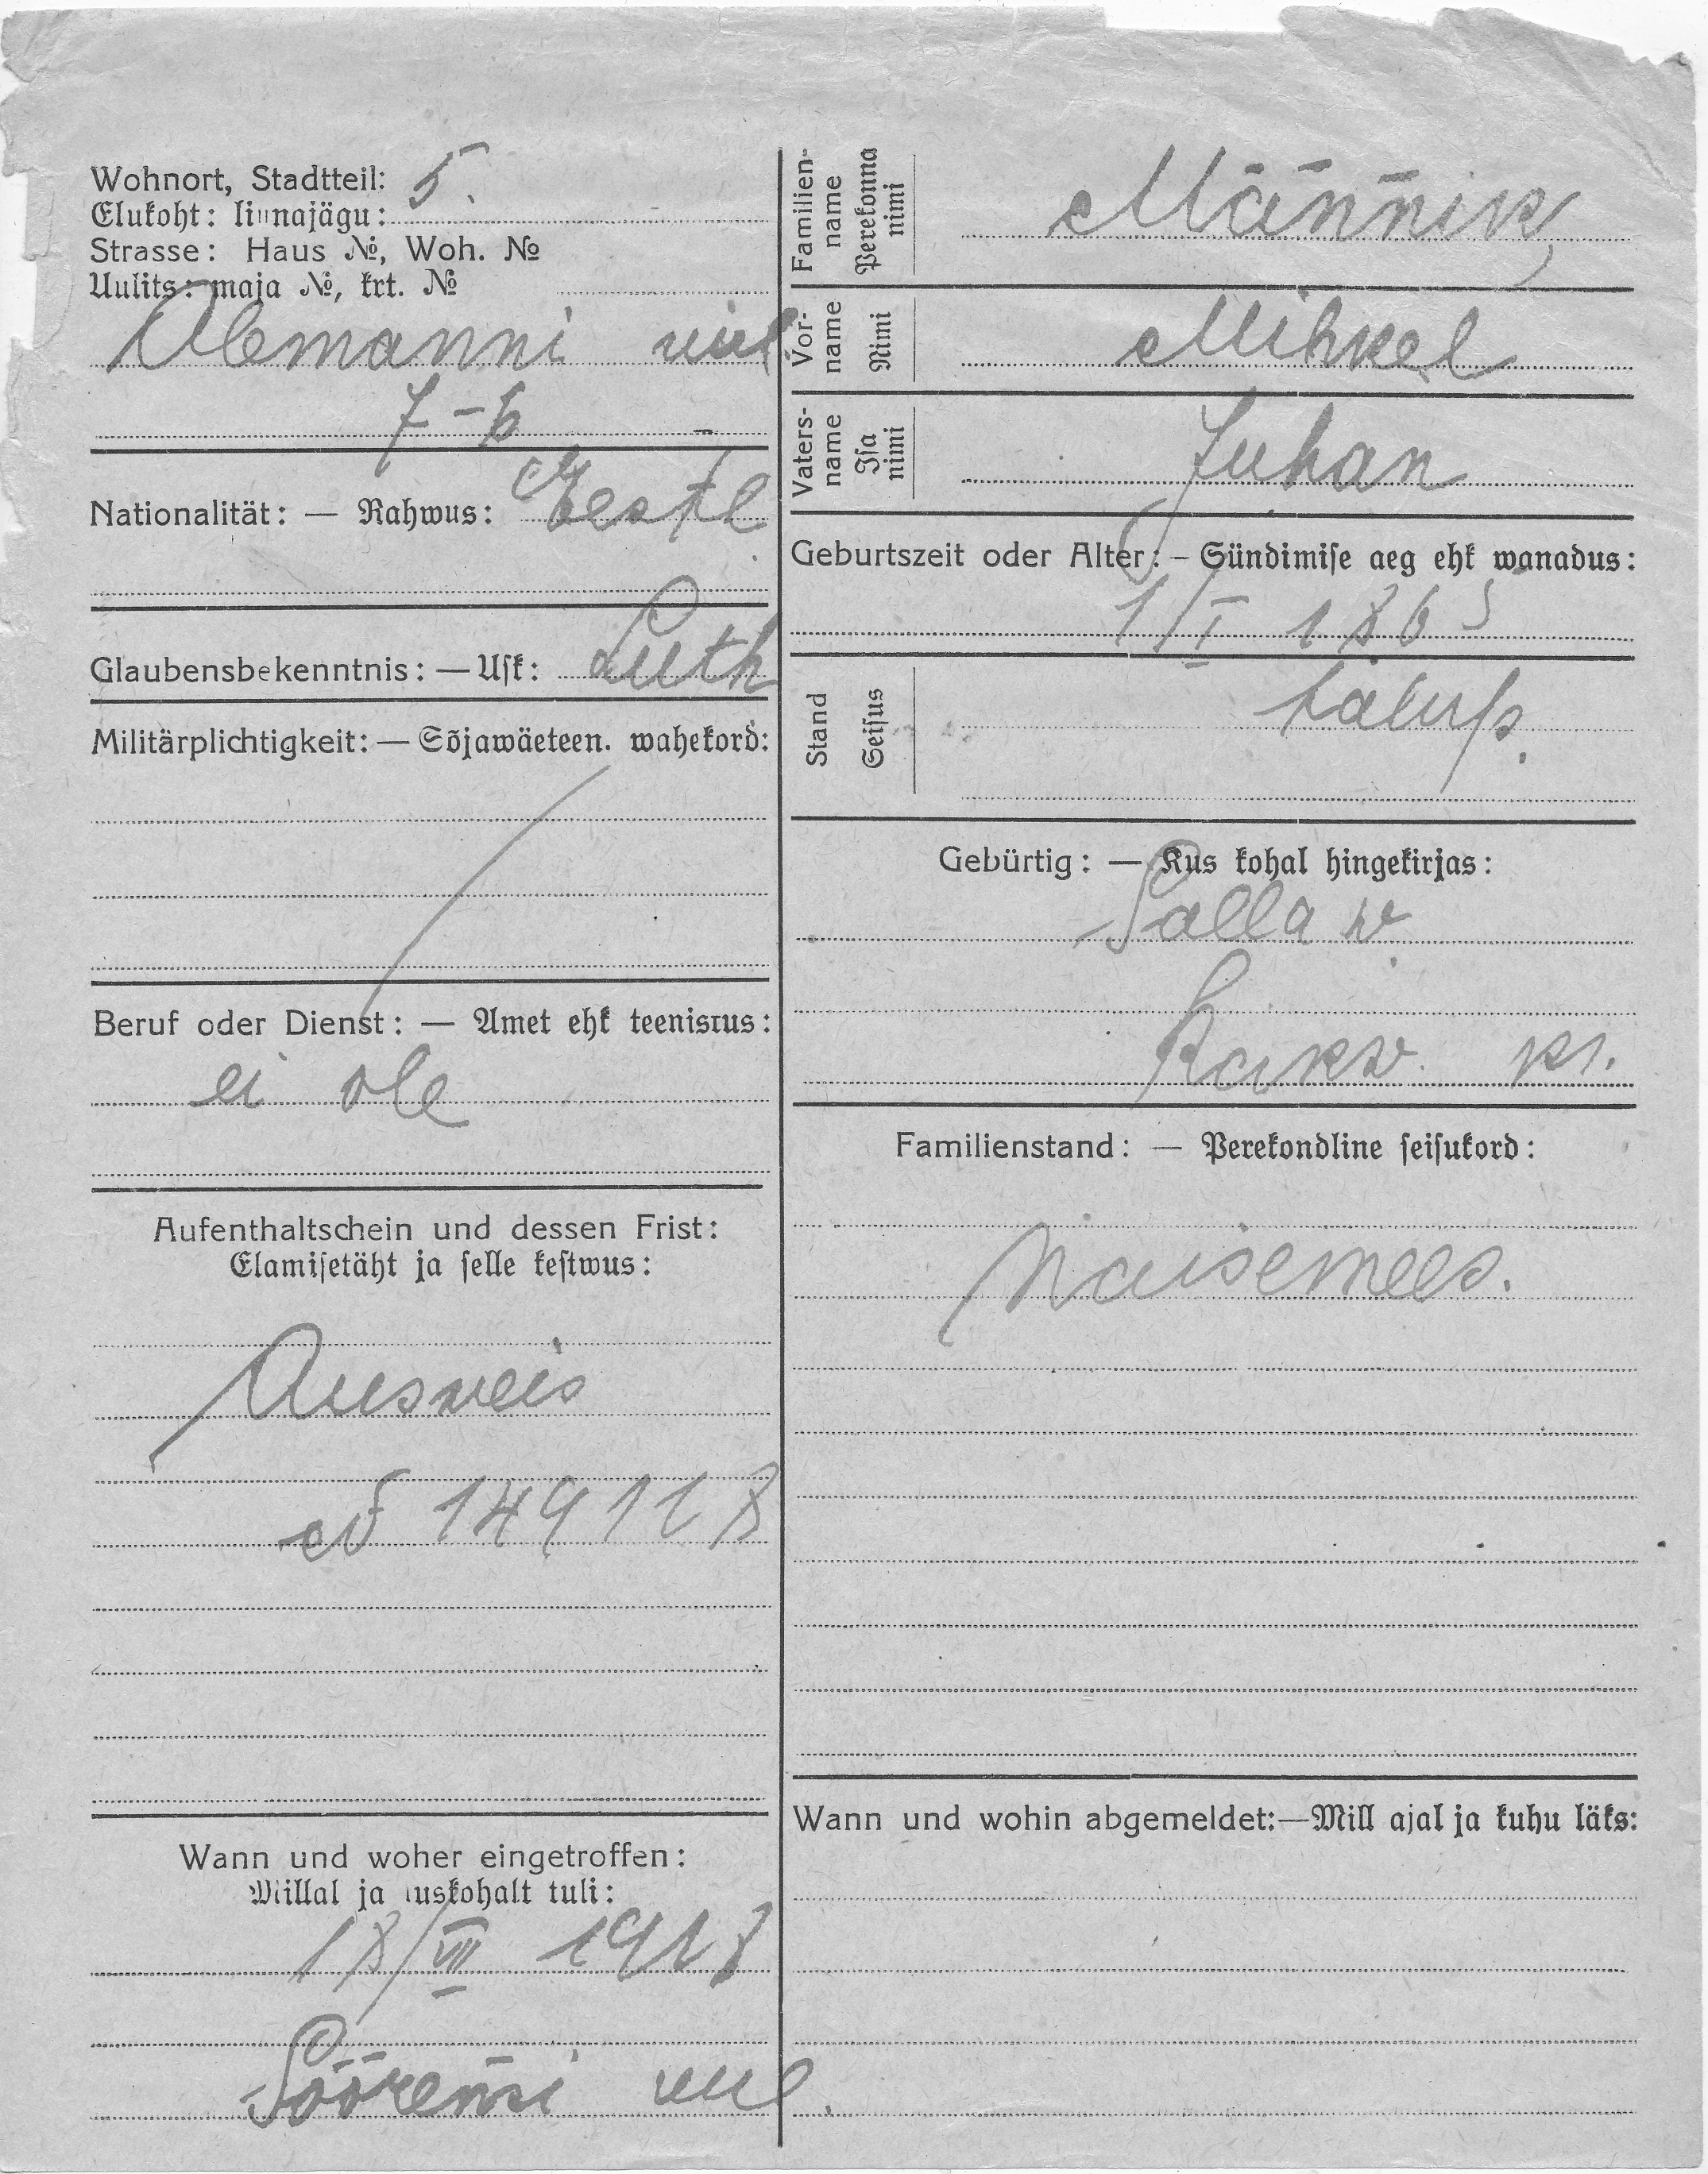 Wohnort, Stadtteil: 5.
Elukoht: linnajägu:
Strasse: Haus №, Woh. №
Uulits: maja №, krt. №
Alemanni uul
7-6
Nationalität: — Rahwus: Eestl
Glaubensbekenntnis: — Usk: Luth
Militärplichtigkeit: — Sõjawäeteen. wahekord:
Beruf oder Dienst: — Amet ehk teenistus:
ei ole
Aufenthaltschein und dessen Frist:
Elamisetäht ja selle kestwus:
Ausweis
№ 149118
Wann und woher eingetroffen:
Millal ja kuskohalt tuli:
18/VII 1918
Söörensi uul.
Familien-
name
Perekonna
nimi
Männik,
Vor-
name
Nimi
Mihkel
Vaters-
name
Isa
nimi
Juhan
Geburtszeit oder Alter: – Sündimise aeg ehk wanadus:
1/I 1865
Stand
Seisus
talup.
Gebürtig: — Kus kohal hingekirjas:
Salla w.
Rakw. kr.
Familienstand: — Perekondline seisukord:
Naisemees.
Wann und wohin abgemeldet:—Mill ajal ja kuhu läks: